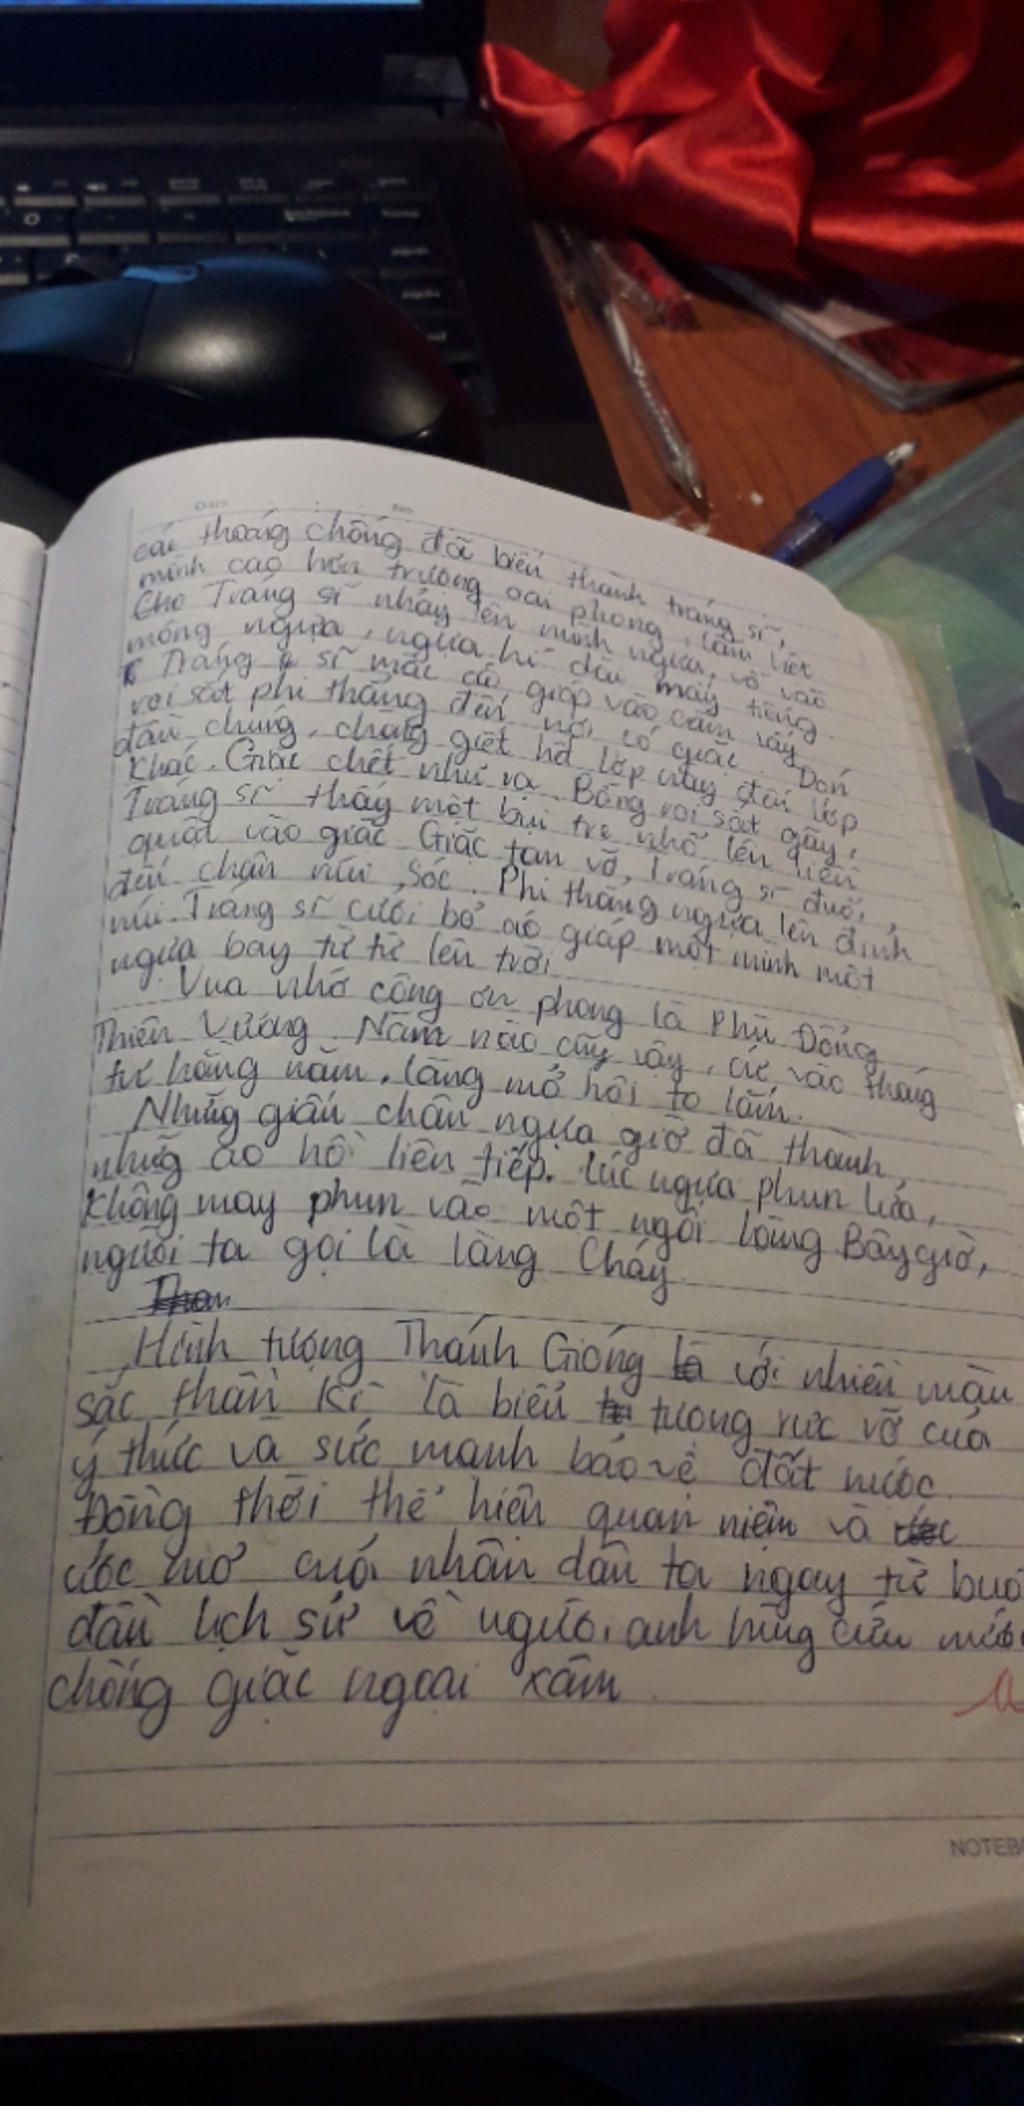 Date No
cái thoáng chống đã biến thành tráng sĩ,
mình cao hơn trượng oai phong, lẫm liệt
Cho Tráng sĩ nhảy lên mình ngựa, vỗ vào
mông ngựa, ngựa hí dài mấy tiếng
Tráng sĩ mặc áo giáp vào cầm
roi sắt phi thẳng đến nơi có giặc. Đón
đầu chúng, chúng giết hết lớp này đến lớp
khác. Giặc chết như rạ. Bỗng roi sắt gãy,
Tráng sĩ thấy một bụi tre nhổ lên liền
quật vào giặc Giặc tan vỡ, Tráng sĩ đuổi,
đến chân núi Sóc. Phi thẳng ngựa lên đỉnh
núi. Tráng sĩ cười bỏ áo giáp một mình một
ngựa bay từ từ lên trời
Vua nhớ công ơn phong là Phù Đổng
Thiên Vương. Năm nào cũy vậy, cứ vào tháng
tư hằng năm, làng mở hội to lắm.
Nhữg giấu chân ngựa giờ đã thành
nhữg ao hồ liên tiếp. Lúc ngựa phun lửa,
không may phun vào một ngôi làng Bây giờ,
người ta gọi là làng Cháy.
Hình tượng Thánh Gióng với nhiều màu
sắc thần kì là biểu tuong rực vỡ của
ý thức và sức mạnh bảo vệ đất nước.
Đồng thời thể hiện quan niệm và
ước mơ cuả nhân dân ta ngay từ buổ
đầu lịch sử về người anh hùng cứu nước
chống giặc ngoại xâm.
NOTEB